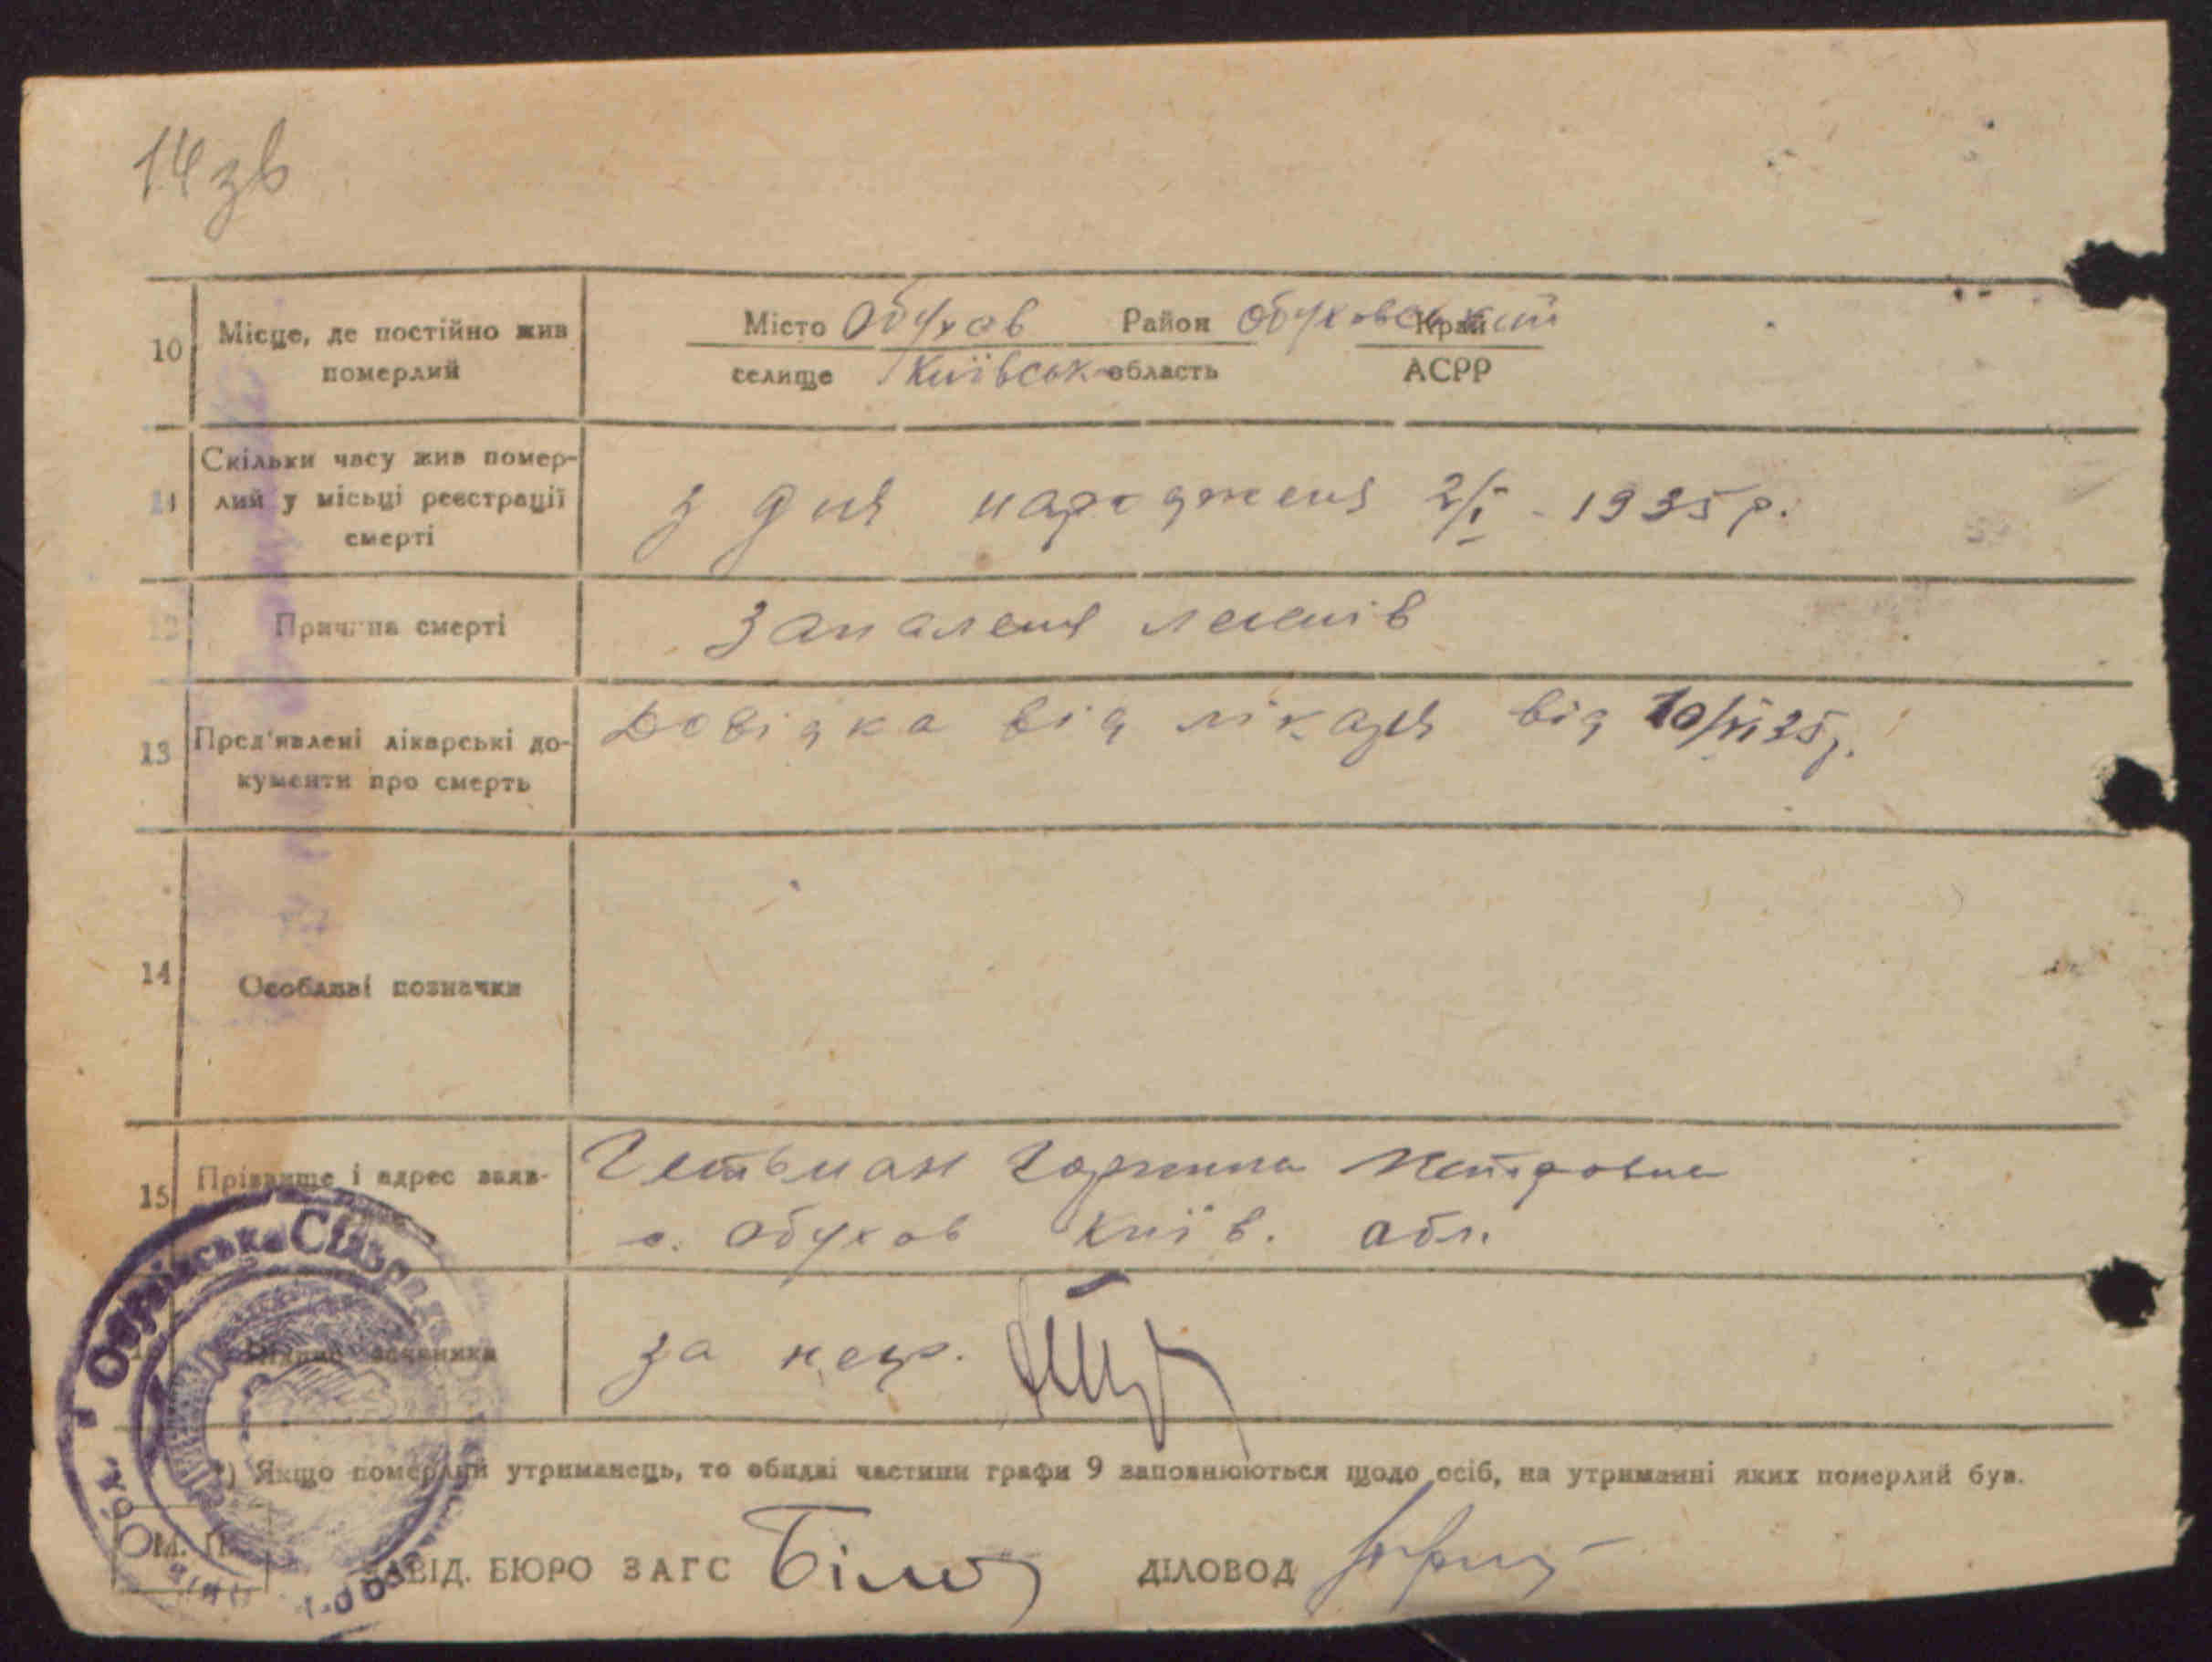 14 зв
10 Місце, де постійно жив померлий
Місто Обухов Район Обуховський Край
селище Київськ область АСРР
11 Скільки часу жив помер-
лий у місьці реєстрації
смерті
з дня народженя 2/I - 1935 р.
12 Причина смерті
Запаленя легенів
13 Пред'явлені лікарські до-
кументи про смерть
Довідка від лікаря від 10/VI 35 р.
14 Особливі позначки
15 Прізвище і адрес заяв-
Гетьман Горпина
с. Обухов Київ. обл.
за неgр.
*) Якщо померлий утриманець, то обидві частини графи 9 заповнюються щодо осіб, на утриманні яких померлий був.
М. П.
ЗАВІД. БЮРО ЗАГС ДІЛОВОД